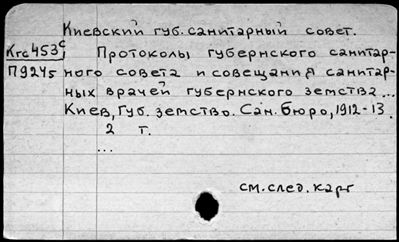 Киевский губ. санитарный совет.
Кгс453с Протоколы губернского санитар-
П9245 ного совета и совещания санитар-
ных врачей губернского земства...
Киев, Губ. земство. Сан. бюро, 1912-13.
2 т.
...
см. след. карт